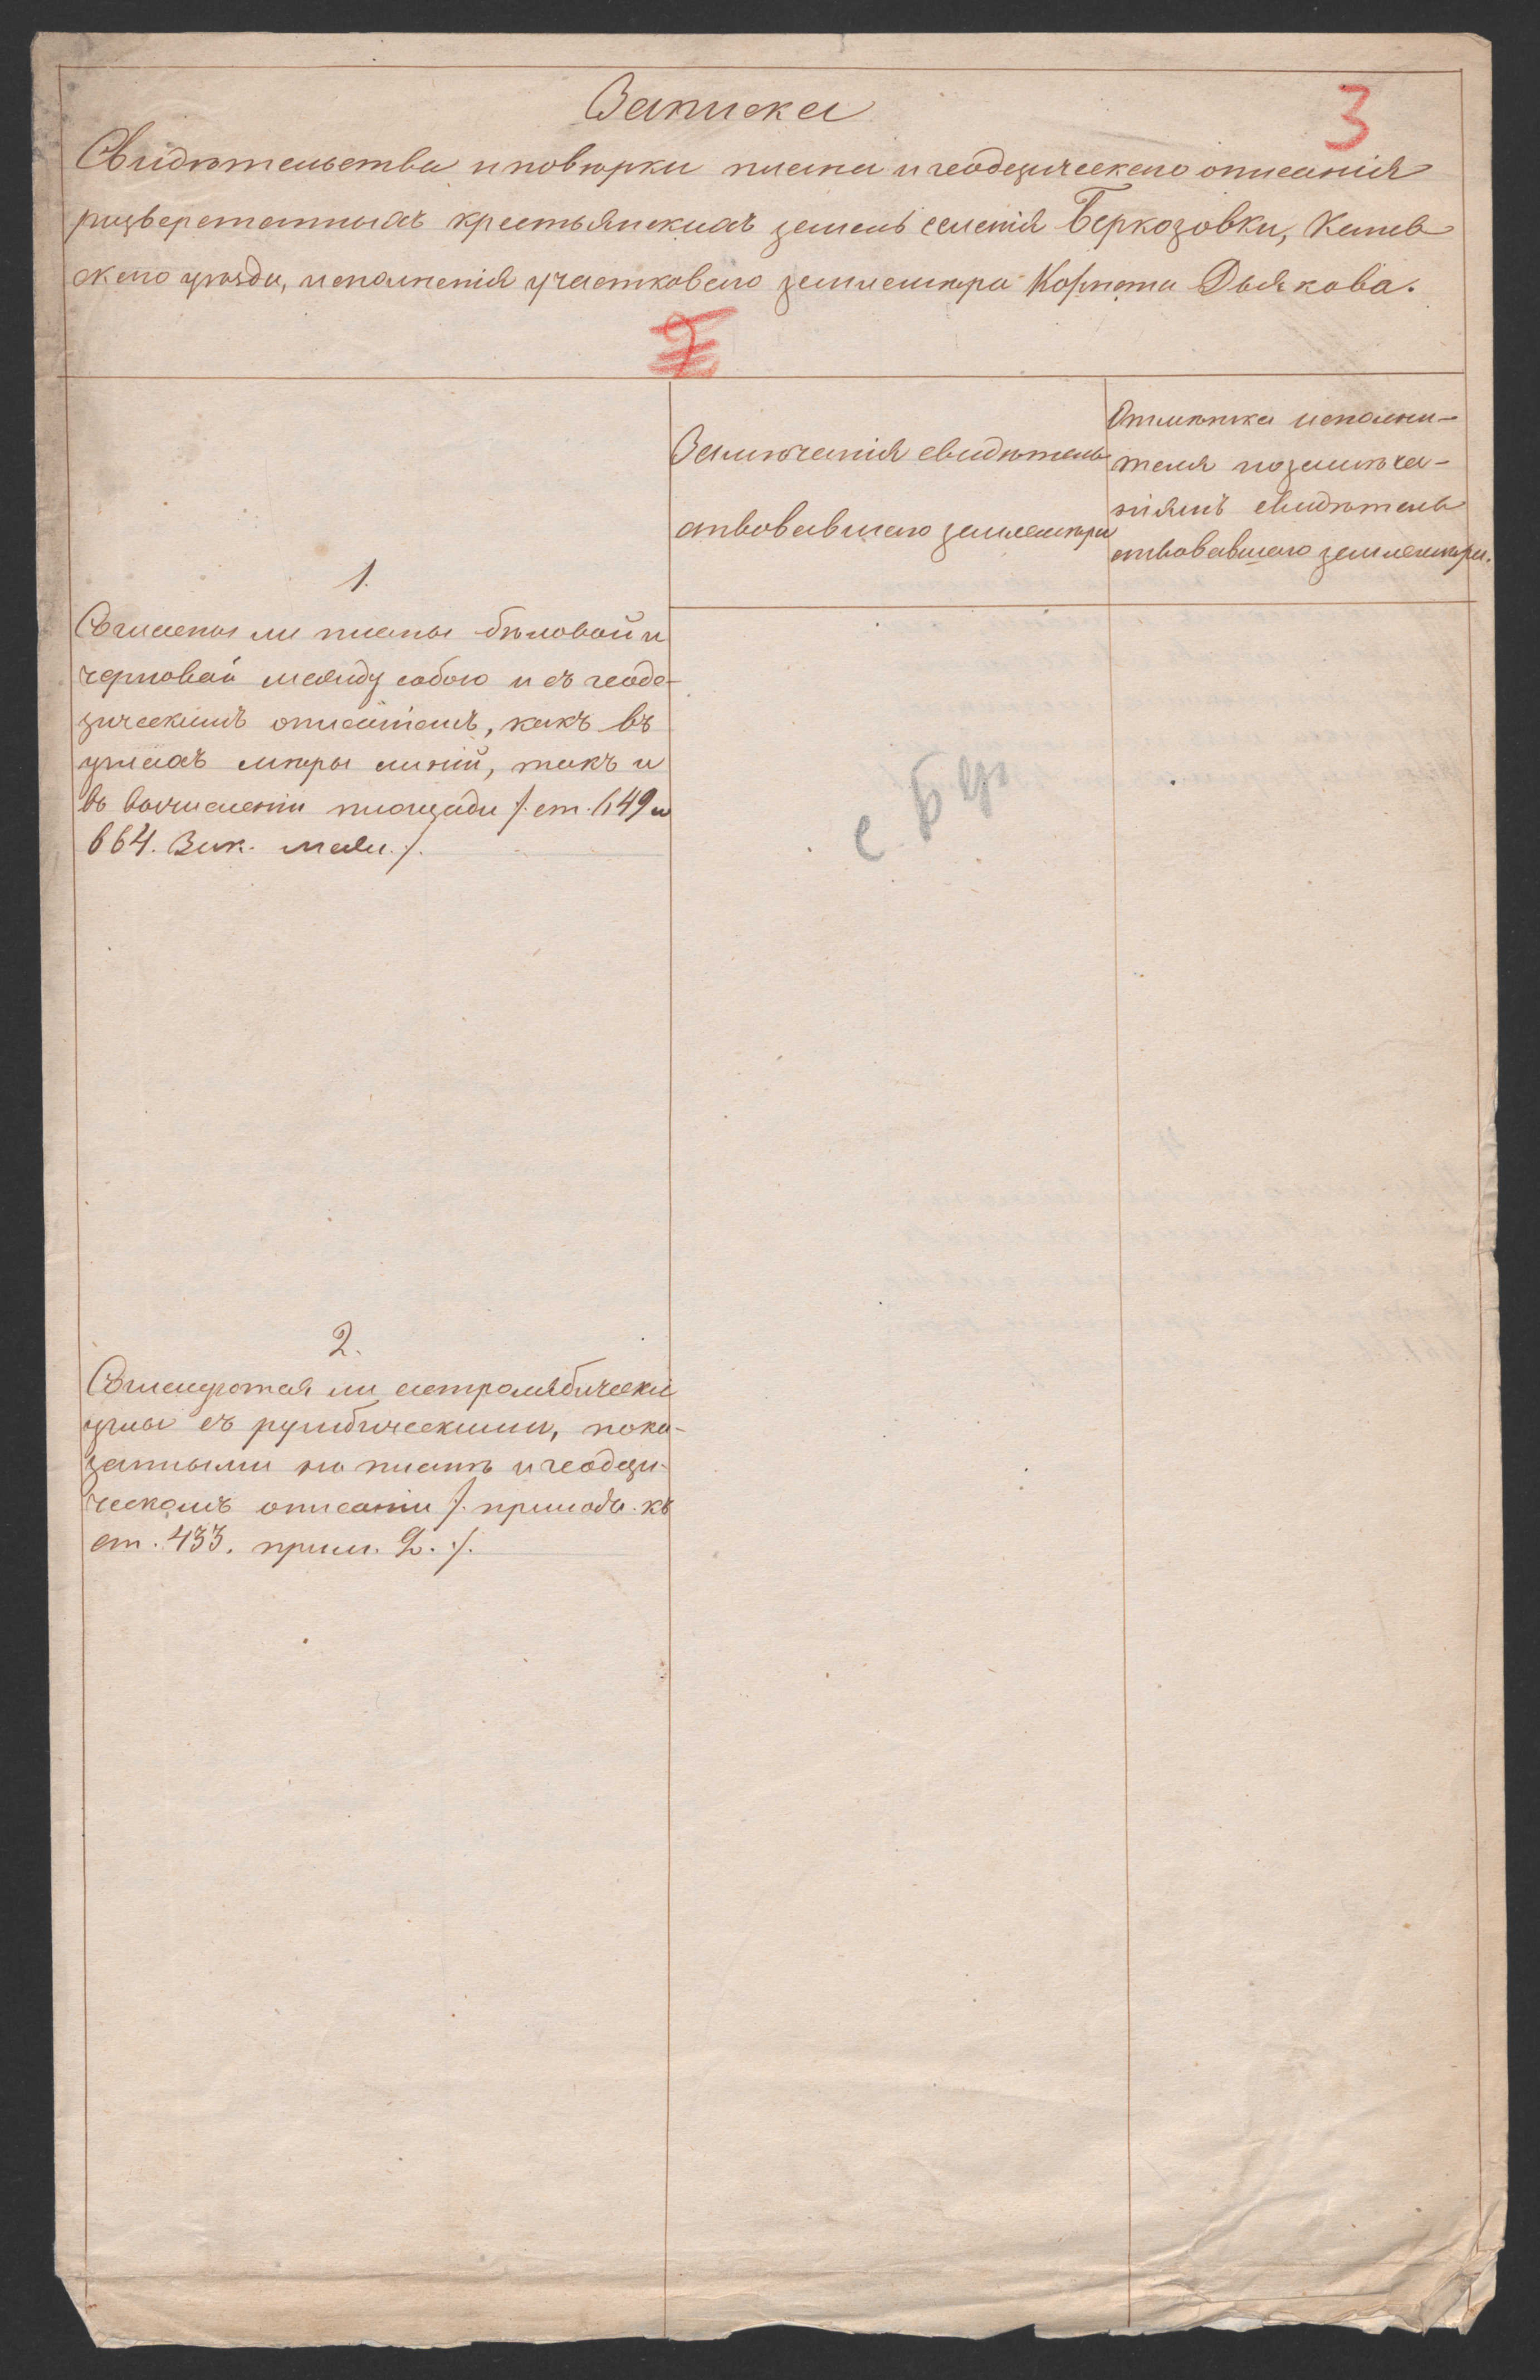 Записка
3
Свидѣтельства и повѣрки плана и геодезическаго описанія
разверстанныхъ крестьянскихъ земель селенія Беркозовки, Канев
скаго уѣзда, исполненія участковаго землемѣра Корнета Дьякова.
2
Замѣчанія свидѣтель
ствовавшаго землемѣра
Отмѣтка исполни-
теля по замѣча-
ніямъ свидѣтель
ствовавшаго землемѣра.
1.
Согласны ли планы бѣловой и
черновой между собою и съ геоде-
зическимъ описаніемъ, какъ въ
углахъ мѣры линій, такъ и
въ вычисленіи площади /. ст. 649 и
664. Зак. меж. ./.
с. Бер
2.
Согласуются ли астролябическіе
углы съ румбическими, пока-
занными на планѣ и геодези-
ческомъ описаніи /. прилож. къ
ст. 433. прим. 2. ./.